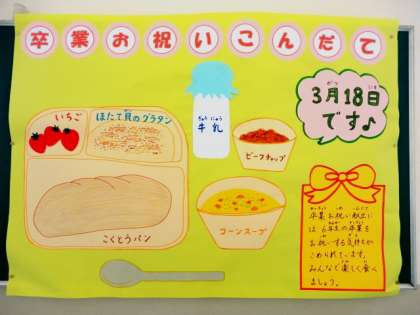 卒業お祝いこんだて
いちご
ほたて貝のグラタン
ぎゅうにゅう
牛乳
ビーフチャップ
がつ にち
3月18日
です♪
こくとうパン
コーンスープ
卒業お祝い献立に
は 6年生の卒業を
お祝いする気持ちが
こめられています。
みんなで楽しく食べ
ましょう。